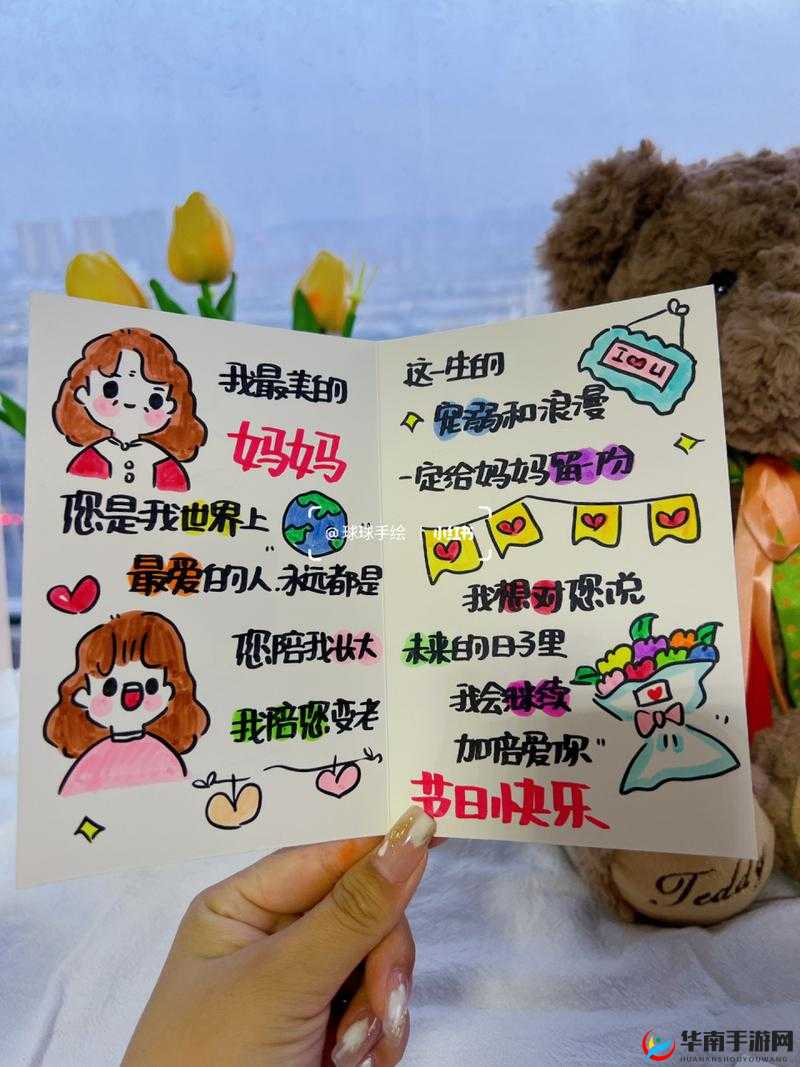 我最美的
妈妈
您是我世界上
最爱的人.永远都是
您陪我长大
我陪您变老
I U
这一生的
宠溺和浪漫
一定给妈妈留一份
我想对您说
未来的日子里
我会继续
加倍爱你
节日快乐
@球球手绘
小红书
Teddy
华南手游网
HUANANSHOUYOUWANG